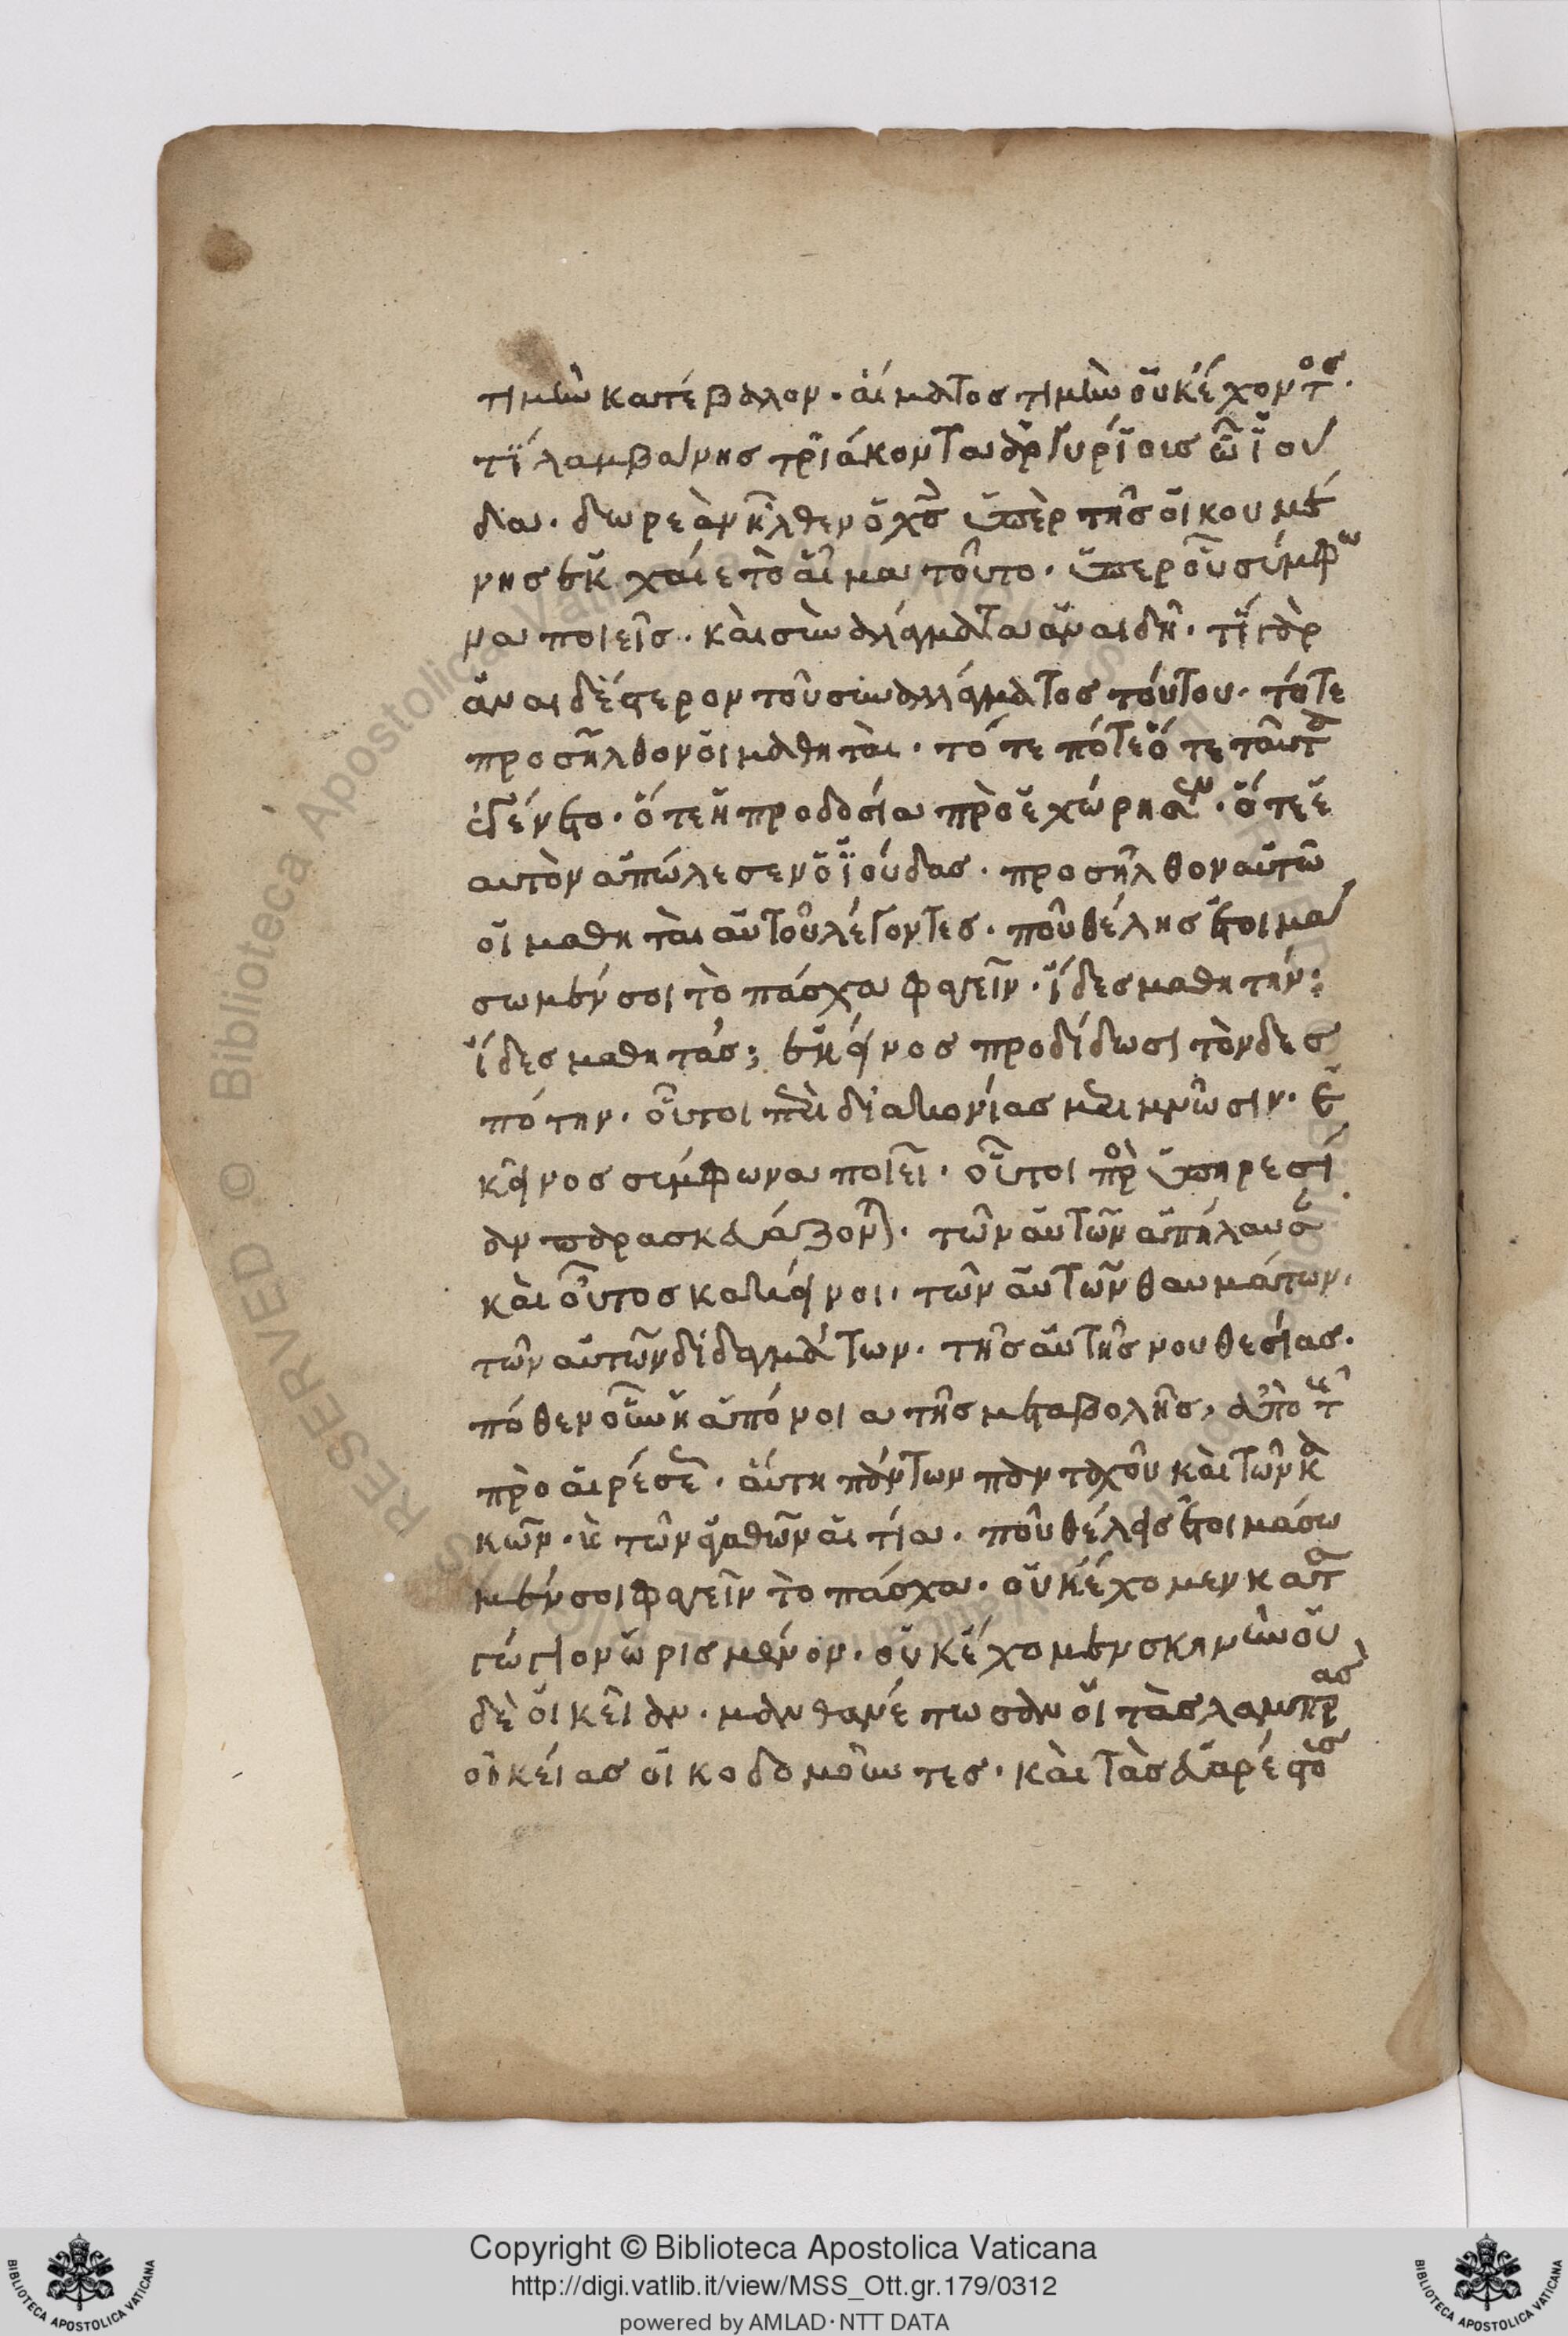 τιμὴν κατέβαλον. αἵματος τιμὴν οὐκ ἔχοντος.
τΐ λαμβάνης τριάκοντα ἀργυρίοις ὦ ϊού
δα. δωρεὰν ἦλθεν ὁ χς ὑπὲρ τῆς οἰκουμέ
νης ἐκχέαι τὸ αἷμα τοῦτο. ὑπερ οὗ σύμφω
να ποιεῖς. καὶ συναλάγματα ἀναιδῆ. τί γὰρ
ἀναιδέστερον τοῦ συναλλάγματος τούτου. τότε
προσῆλθον οἱ μαθηταὶ. τότε πότε ὅτε ταῦτα
ἐγένετο. ὅτε ἡ προδοσία προεχώρησεν. ὅτε ἑ
αυτὸν ἀπώλεσεν ὁ ϊούδας. προσῆλθον αὐτῶ
οἱ μαθηταὶ αὐτοῦ λέγοντες. ποῦ θέλης ἑτοιμά
σωμέν σοι τὸ πάσχα φαγεῖν. ἴδες μαθητήν;
ἴδες μαθητάς; ἐκεῖνος προδίδωσι τὸν δεσ
πότην. οὗτοι περὶ διακονίας μεριμνῶσιν. ἐ
κεῖνος σύμφωνα ποιεῖ. οὗτοι πρὸς ὑπηρεσί
αν παρασκευάζονται. τῶν αὐτῶν ἀπήλαυσε
καὶ οὗτος κακεῖνοι. τῶν αὐτῶν θαυμάτων.
τῶν αὐτῶν διδαγμάτων. τῆς αὐτῆς νουθεσίας.
πόθεν οὖν ἡ ἀπόνοια τῆς μεταβολῆς, ἀπὸ τῆς
προαιρέσεως. αὕτη πάντων πανταχοῦ καὶ τῶν κα
κῶν. κ τῶν ἀγαθῶν αἰτία. ποῦ θέλεις ἑτοιμάσω
μέν σοι φαγεῖν τὸ πάσχα. οὐκ ἔχομεν κατα
γώγιον ὡρισμένον. οὐκ ἔχομεν σκηνὴν οὐ
δὲ οἰκείαν. μανθανέτωσαν οἱ τὰς λαμπρὰς
οἰκείας οἰκοδομοῦντες. καὶ τὰς εὐαρέστους